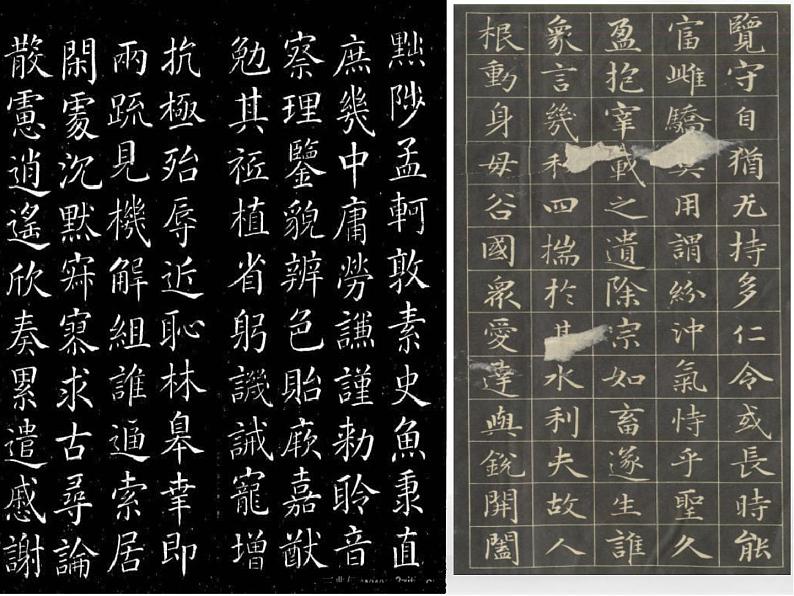 黜陟孟軻敦素史魚秉直
庶幾中庸勞謙謹勅聆音
察理鑒貌辨色貽厥嘉猷
勉其祗植省躬譏誡寵增
抗極殆辱近恥林皋幸即
兩疏見機解組誰逼索居
閑處沉默寂寥求古尋論
散慮逍遙欣奏累遣慼謝
覽守自猶无持多仁令或長時能
富雌驕用謂紛沖氣恃乎聖久
盈抱宰載之遺除宗如畜遂生誰
象言幾和四揣於其水利夫故人
根動身毋谷國衆愛達與銳開闔